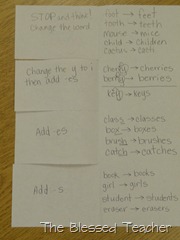 STOP and think!
Change the word
foot → feet
tooth → teeth
mouse → mice
child → children
cactus → cacti
Change the y to i
then add -es
cherry → cherries
berry → berries
key → keys
Add -es
class → classes
box → boxes
brush → brushes
catch → catches
Add -s
book → books
girl → girls
student → students
eraser → erasers
The Blessed Teacher